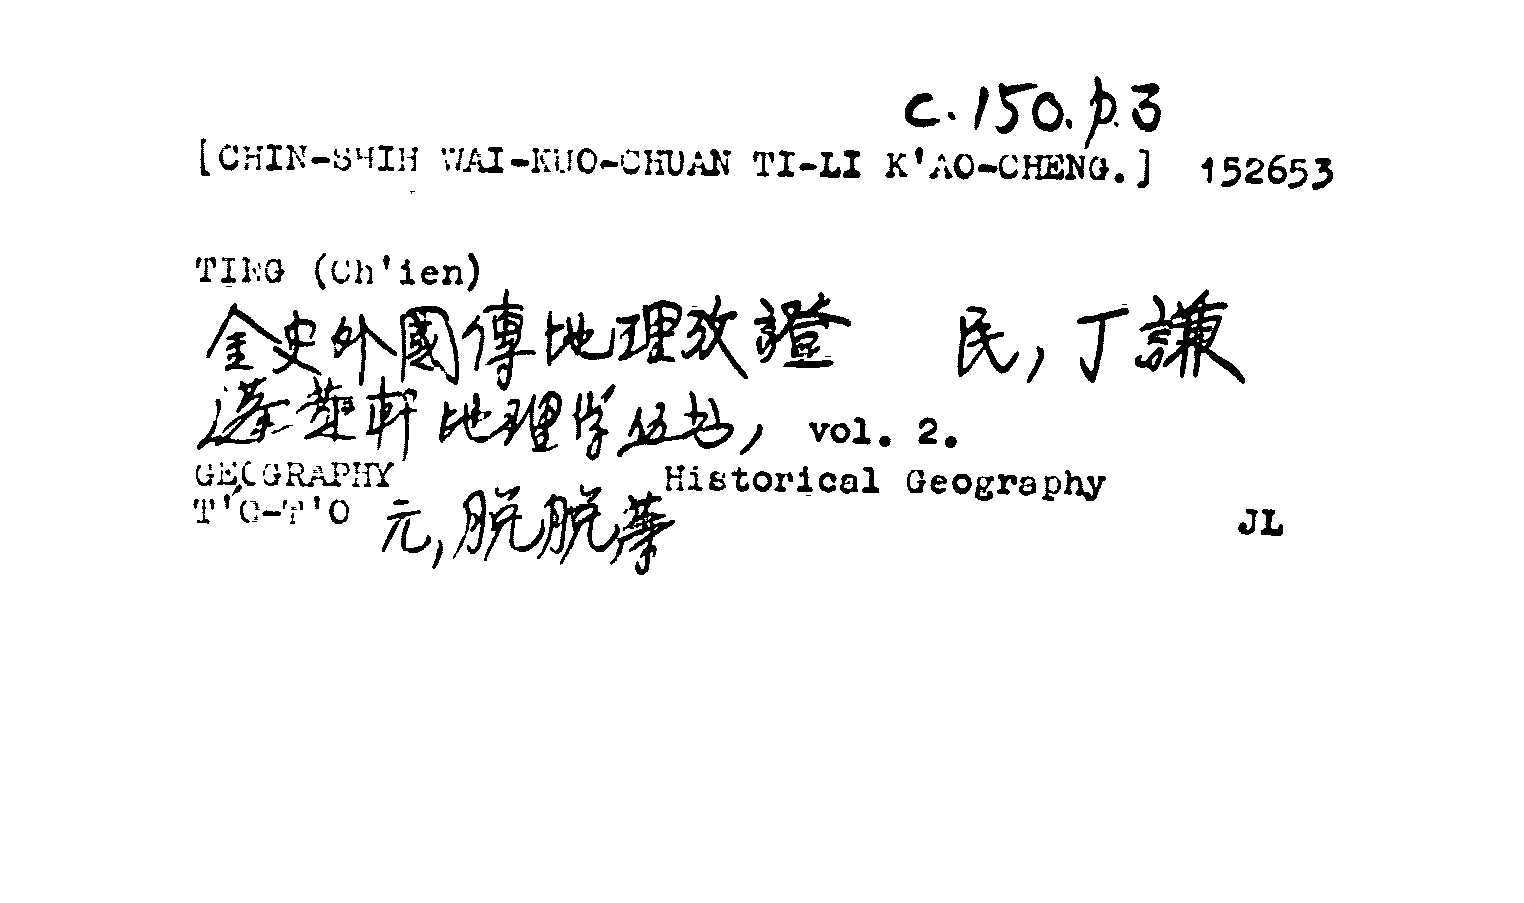 c.150.p.3
[CHIN-SHIH WAI-KUO-CHUAN TI-LI K'AO-CHENG.] 152653
TING (Ch'ien)
金史外國傳地理攷證 民, 丁謙
蓬萊軒地理学叢书, vol. 2.
GEOGRAPHY Historical Geography
T'O-T'O 元, 脫脫等
JL